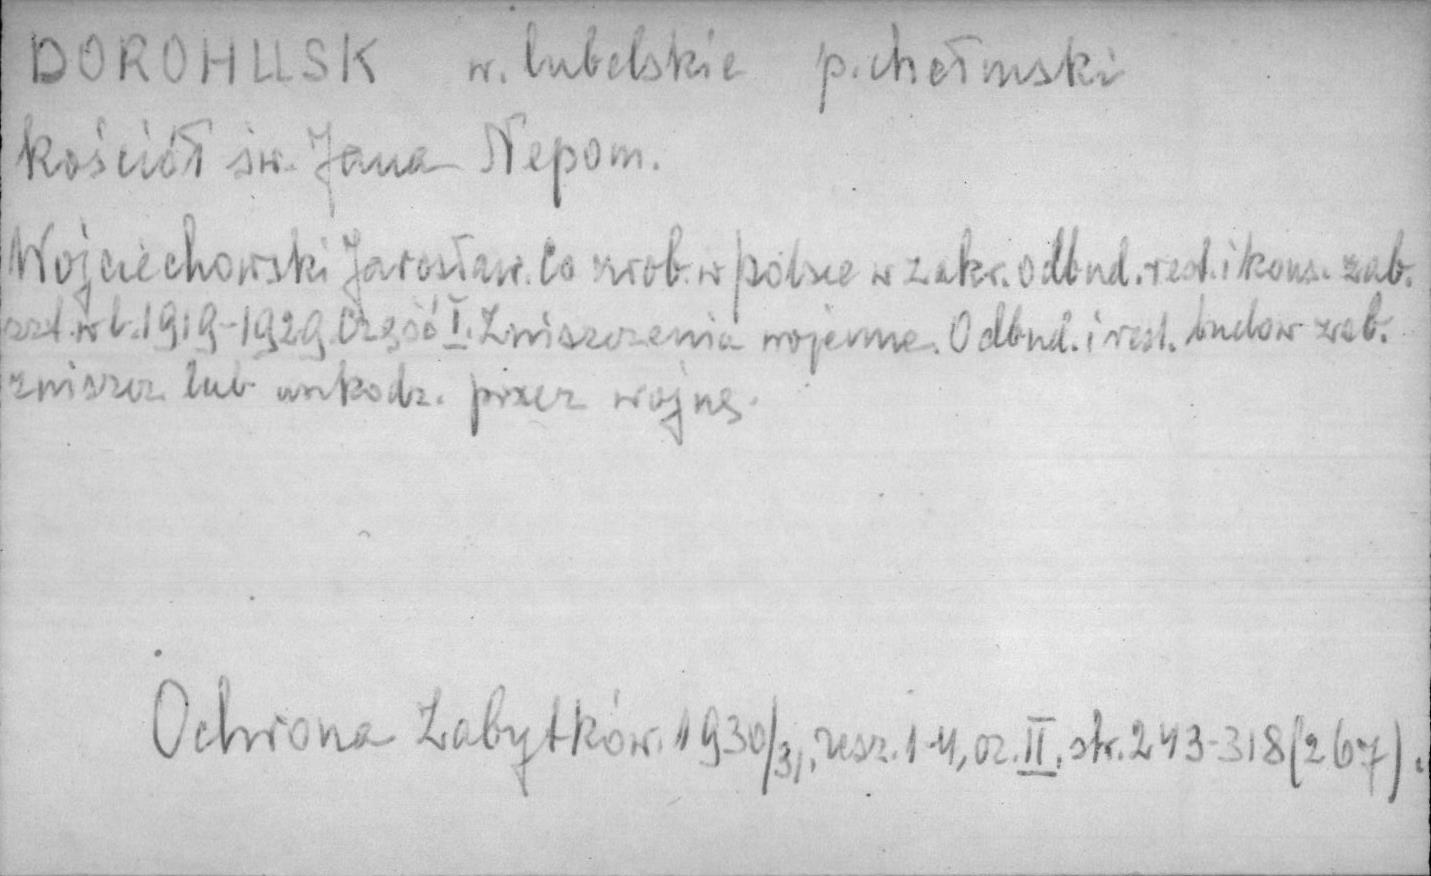 DOROHUSK w. lubelskie p. chełmski
kościół św. Jana Nepom.
Wojciechowski Jarosław. Co zrob. w Polsce w zakr. odbud. rest. i kons. zab.
szt. w l. 1919-1929 Część I. Zniszczenia wojenne. Odbud. i rest. budow zab.
zniszcz. lub uszkodz. przez wojnę.
Ochrona Zabytków. 1930/31, zesz. 1-4, cz. II, str. 243-318 (267).